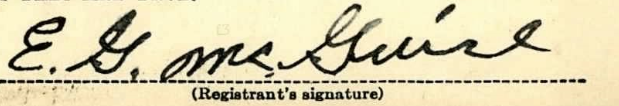 E. G. McGuire
(Registrant's signature)